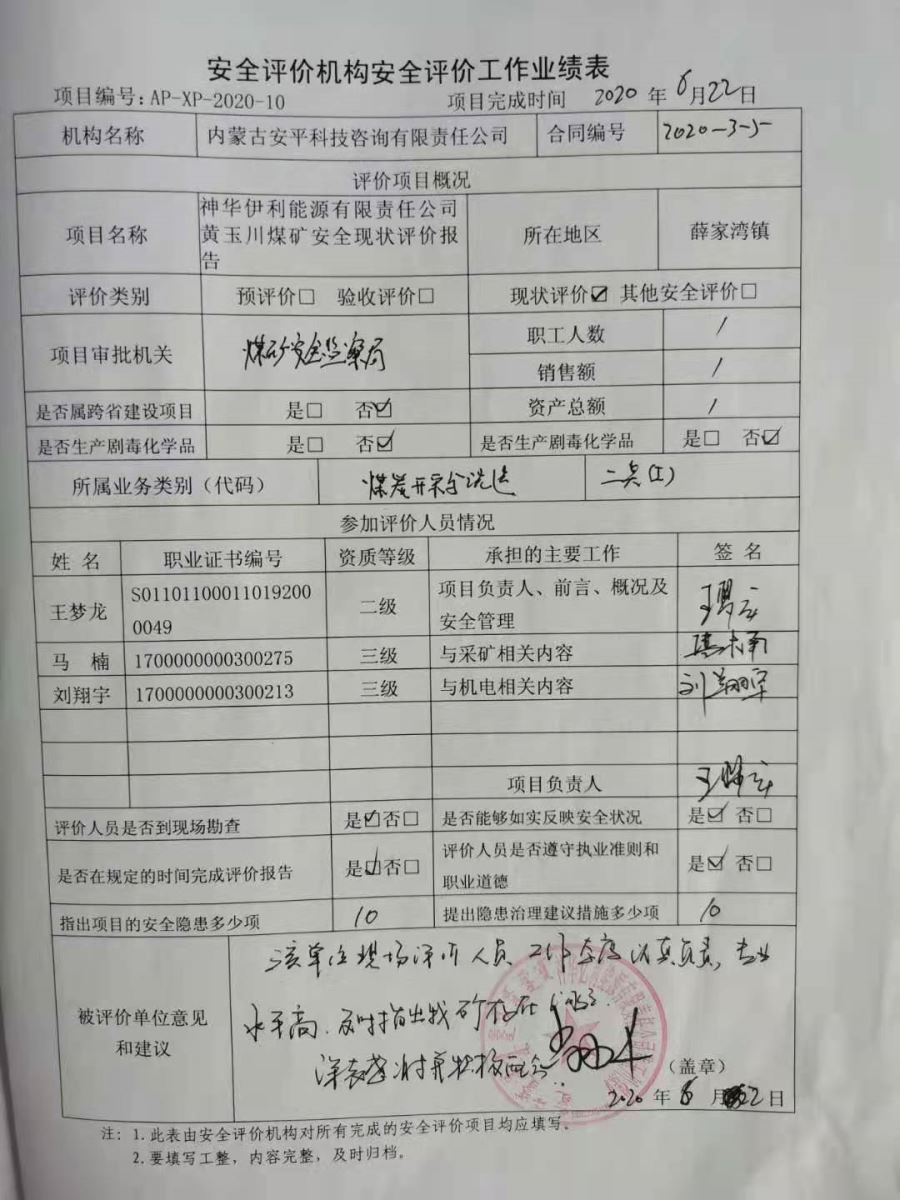 安全评价机构安全评价工作业绩表
项目编号：AP-XP-2020-10 项目完成时间 2020 年 6月22日
机构名称 内蒙古安平科技咨询有限责任公司 合同编号 2020-3-5
评价项目概况
项目名称 神华伊利能源有限责任公司
黄玉川煤矿安全现状评价报
告 所在地区 薛家湾镇
评价类别 预评价□ 验收评价□ 现状评价☑ 其他安全评价□
项目审批机关 煤矿安全监察局 职工人数 /
销售额 /
是否属跨省建设项目 是□ 否☑ 资产总额 /
是否生产剧毒化学品 是□ 否☑ 是否生产剧毒化学品 是□ 否☑
所属业务类别（代码） 煤炭开采与洗选
参加评价人员情况
姓 名 职业证书编号 资质等级 承担的主要工作 签 名
王梦龙 S01101100011019200
0049 二级 项目负责人、前言、概况及
安全管理
马 楠 1700000000300275 三级 与采矿相关内容 马楠
刘翔宇 1700000000300213 三级 与机电相关内容 刘翔宇
项目负责人
评价人员是否到现场勘查 是☑否□ 是否能够如实反映安全状况 是☑ 否□
是否在规定的时间完成评价报告 是☑否□ 评价人员是否遵守执业准则和
职业道德 是☑ 否□
指出项目的安全隐患多少项 10 提出隐患治理建议措施多少项 10
被评价单位意见
和建议
该单位现场评价人员 工作态度认真负责，专业
水平高，及时指出我矿存在问题
（盖章）
2020 年 6 月22日
注：1.此表由安全评价机构对所有完成的安全评价项目均应填写。
2.要填写工整，内容完整，及时归档。